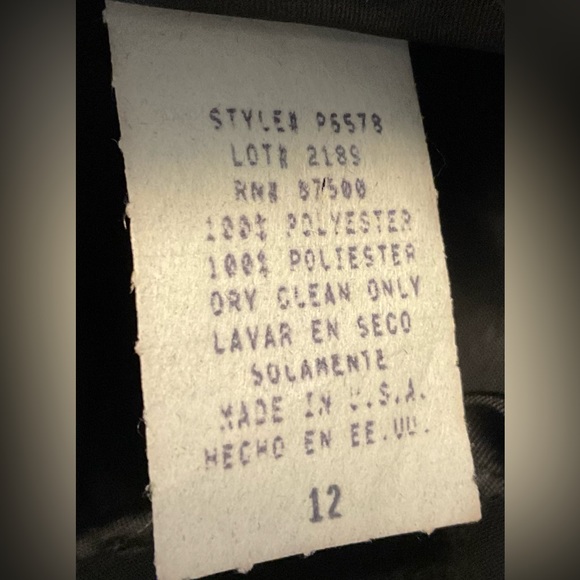 STYLE# P5578
LOT# 2189
RN# 87500
100% POLYESTER
100% POLIESTER
DRY CLEAN ONLY
LAVAR EN SECO
SOLAMENTE
MADE IN U.S.A.
HECHO EN EE.UU.
12